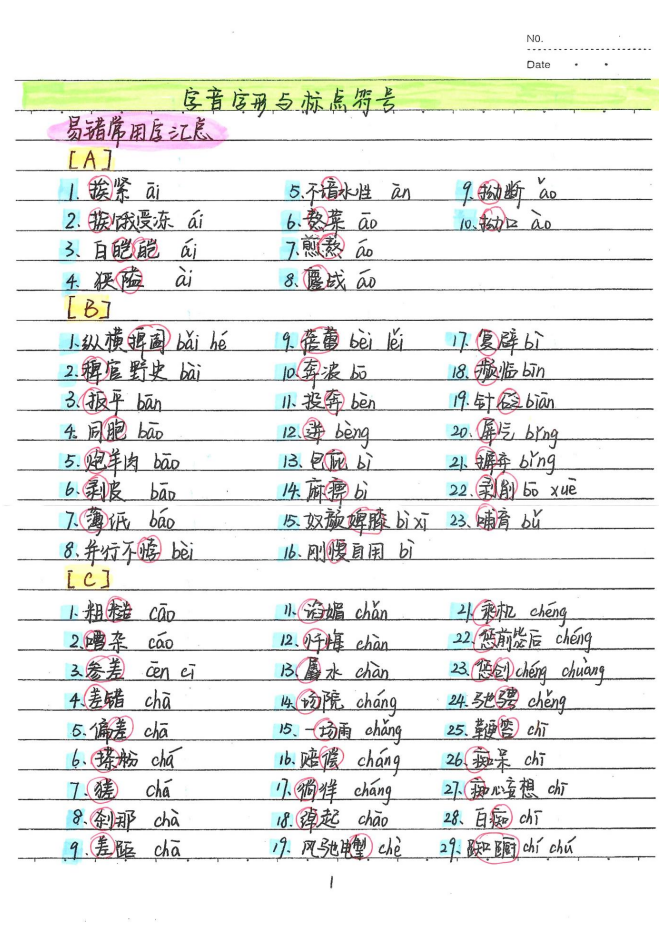 NO.
Date
字音字形与标点符号
易错常用字汇总
[A]
1. 挨紧 āi 5. 不谙水性 ān 9. 拗断 ǎo
2. 挨饿受冻 ái 6. 熬菜 āo 10. 拗口 ào
3. 白皑皑 ái 7. 煎熬 áo
4. 狭隘 ài 8. 鏖战 áo
[B]
1. 纵横捭阖 bǎi hé 9. 蓓蕾 bèi lěi 17. 复辟 bì
2. 稗官野史 bài 10. 奔波 bō 18. 濒临 bīn
3. 扳平 bān 11. 投奔 bèn 19. 针砭 biān
4. 同胞 bāo 12. 迸 bèng 20. 屏气 bǐng
5. 炮羊肉 bāo 13. 包庇 bì 21. 摒弃 bǐng
6. 剥皮 bāo 14. 麻痹 bì 22. 剥削 bō xuē
7. 薄纸 báo 15. 奴颜婢膝 bì xī 23. 哺育 bǔ
8. 并行不悖 bèi 16. 刚愎自用 bì
[C]
1. 粗糙 cāo 11. 谄媚 chǎn 21. 乘机 chéng
2. 嘈杂 cáo 12. 忏悔 chàn 22. 惩前毖后 chéng
3. 参差 cēn cī 13. 羼水 chàn 23. 惩创 chéng chuàng
4. 差错 chā 14. 场院 cháng 24. 驰骋 chěng
5. 偏差 chā 15. 一场雨 chǎng 25. 鞭笞 chī
6. 搽粉 chá 16. 赔偿 cháng 26. 痴呆 chī
7. 猹 chá 17. 徜徉 cháng 27. 痴心妄想 chī
8. 刹那 chà 18. 绰起 chāo 28. 白痴 chī
9. 差距 chā 19. 风驰电掣 chè 29. 踟蹰 chí chú
1